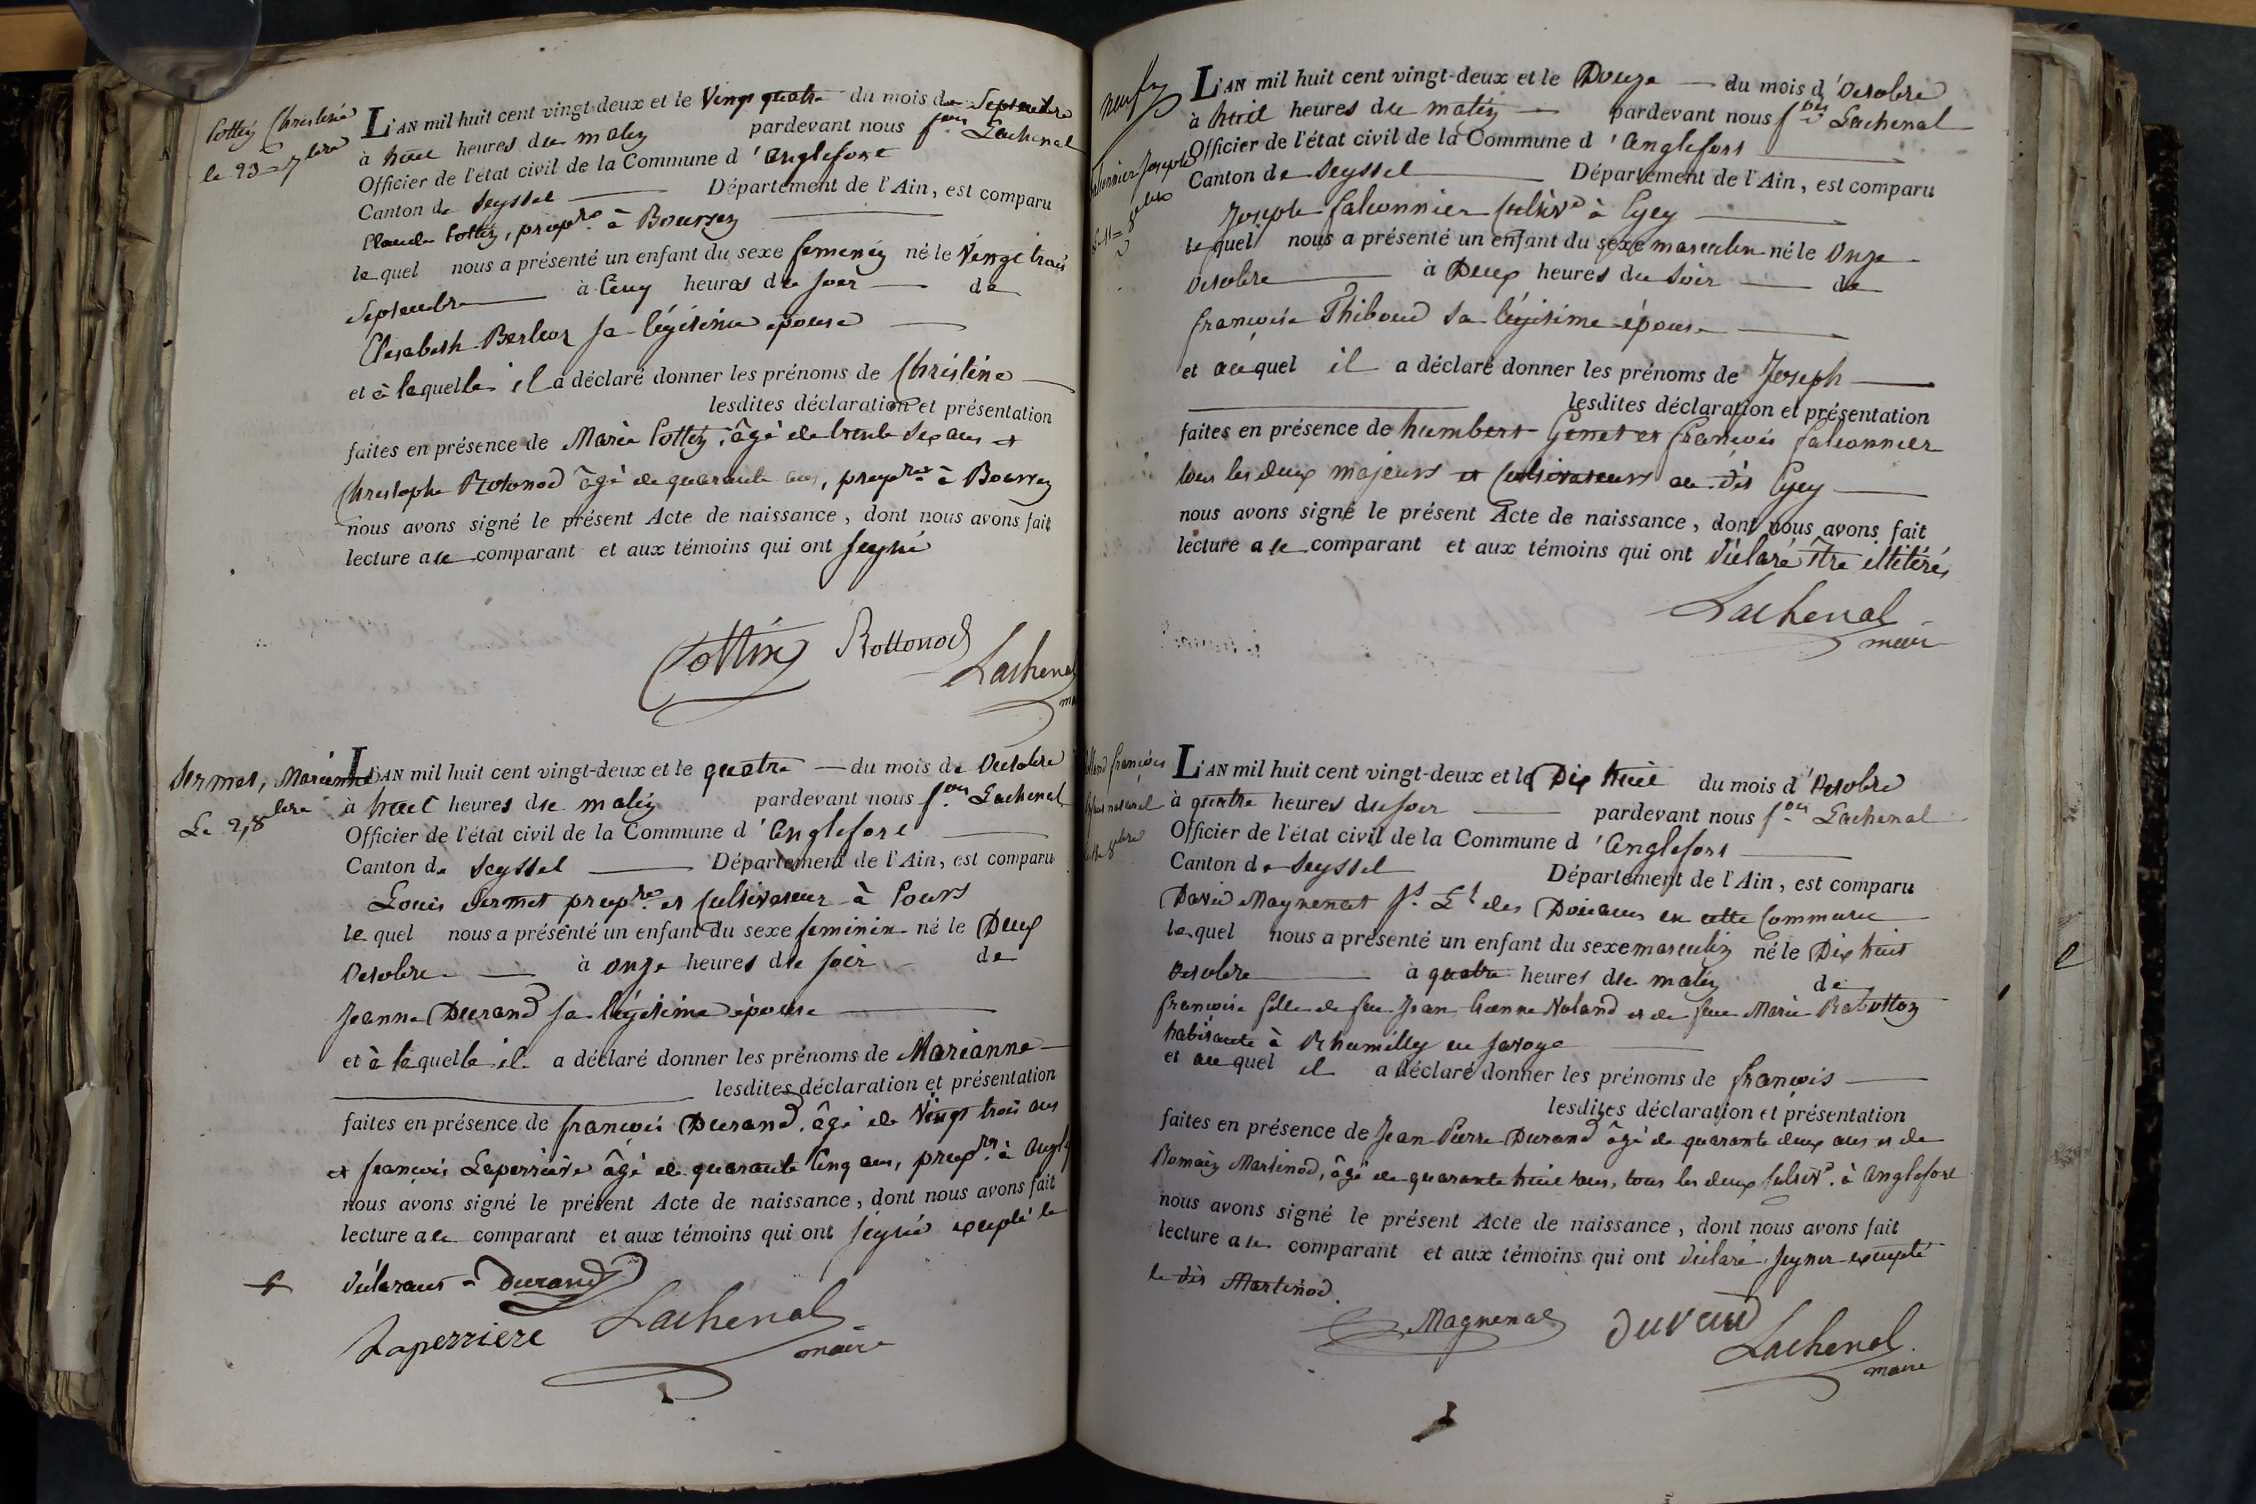 Cottin Christine
le 23 = 7bre
L'AN mil huit cent vingt-deux et le Vingt quatre du mois de Septembre
à huit heures du matin pardevant nous fois Lachenal
Officier de l'état civil de la Commune d'Anglefort
Canton de Seyssel Département de l'Ain, est comparu
Claude Cottin, proprre à Boursin
lequel nous a présenté un enfant du sexe feminin né le Vingt trois
Septembre à Cinq heures du soir de
Elisabeth Berlioz sa légitime épouse
et à laquelle il a déclaré donner les prénoms de Christine
lesdites déclaration et présentation
faites en présence de Marie Cottin, âgé de trente six ans et
Christophe Rotonod âgé de quarante ans, proprres à Boursin
nous avons signé le présent Acte de naissance, dont nous avons fait
lecture au comparant et aux témoins qui ont signé
Cottin Rottonod
Lachenal
Sermet, Marianne
Le 2, 8bre
L'AN mil huit cent vingt-deux et le quatre du mois de Octobre
à huit heures du matin pardevant nous fois Lachenal
Officier de l'état civil de la Commune d'Anglefort
Canton de Seyssel Département de l'Ain, est comparu
Louis Sermet proprre et Cultivateur à Lours
lequel nous a présenté un enfant du sexe feminin né le Deux
Octobre à onze heures du soir de
Jeanne Durand sa légitime épouse
et à laquelle il a déclaré donner les prénoms de Marianne
lesdites déclaration et présentation
faites en présence de françois Durand, âgé de Vingt trois ans
et françois Laperrière âgé de quarante Cinq ans, proprres à Angl
nous avons signé le présent Acte de naissance, dont nous avons fait
lecture au comparant et aux témoins qui ont signé excepté le
déclarant Durand
Laperriere Lachenal
maire
neuf
Falconnier Joseph
le 11 = 8bre
L'AN mil huit cent vingt-deux et le Douze du mois d'Octobre
à huit heures du matin pardevant nous fois Lachenal
Officier de l'état civil de la Commune d'Anglefort
Canton de Seyssel Département de l'Ain, est comparu
Joseph falconnier Cultivr à Eyey
lequel nous a présenté un enfant du sexe masculin né le Onze
Octobre à Deux heures du Soir de
françoise Thiboud sa légitime épouse
et auquel il a déclaré donner les prénoms de Joseph
lesdites déclaration et présentation
faites en présence de humbert Genet et françois falconnier
tous les deux majeurs et Cultivateurs au dit Eyey
nous avons signé le présent Acte de naissance, dont nous avons fait
lecture au comparant et aux témoins qui ont déclaré être illitérés
Lachenal
maire
Noland françois
fils naturel
8bre
L'AN mil huit cent vingt-deux et le Dix huit du mois d'Octobre
à quatre heures du soir pardevant nous fois Lachenal
Officier de l'état civil de la Commune d'Anglefort
Canton de Seyssel Département de l'Ain, est comparu
David Magnenat Ss Lt des Douanes en cette Commune
lequel nous a présenté un enfant du sexe masculin né le Dix huit
Octobre à quatre heures du matin de
françoise fille de feu Jean Etienne Noland et de feue Marie Rabottoz
habitante à Rhumilly en Savoye
et auquel il a déclaré donner les prénoms de françois
lesdites déclaration et présentation
faites en présence de Jean Pierre Durand âgé de quarante deux ans et de
Romain Martinod, âgé de quarante huit ans, tous les deux Cultivr à Anglefort
nous avons signé le présent Acte de naissance, dont nous avons fait
lecture au comparant et aux témoins qui ont déclaré signer excepté
le dit Martinod.
Magnenat Durand
Lachenal
maire